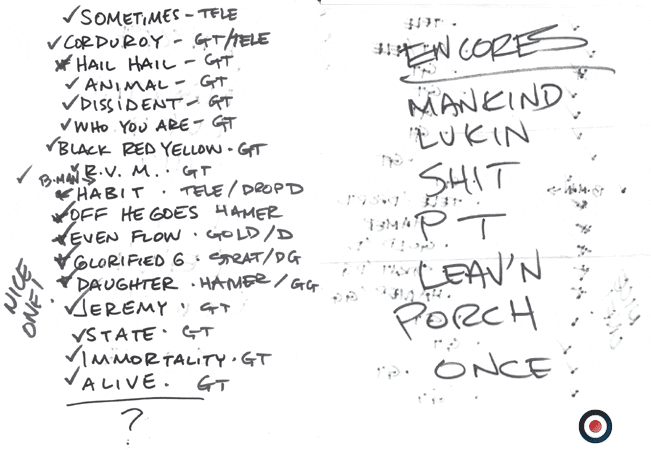 SOMETIMES - TELE
CORDUROY - GT/TELE
HAIL HAIL - GT
ANIMAL - GT
DISSIDENT - GT
WHO YOU ARE - GT
BLACK RED YELLOW · GT
R.V.M. · GT
B.MAN→
HABIT · TELE/DROP D
OFF HE GOES HAMER
EVEN FLOW · GOLD/D
GLORIFIED G · STRAT/DG
DAUGHTER · HAMER/GG
JEREMY · GT
STATE · GT
IMMORTALITY · GT
ALIVE · GT
?
NICE
ONE!
ENCORES
MANKIND
LUKIN
SHIT
PT
LEAV'N
PORCH
ONCE